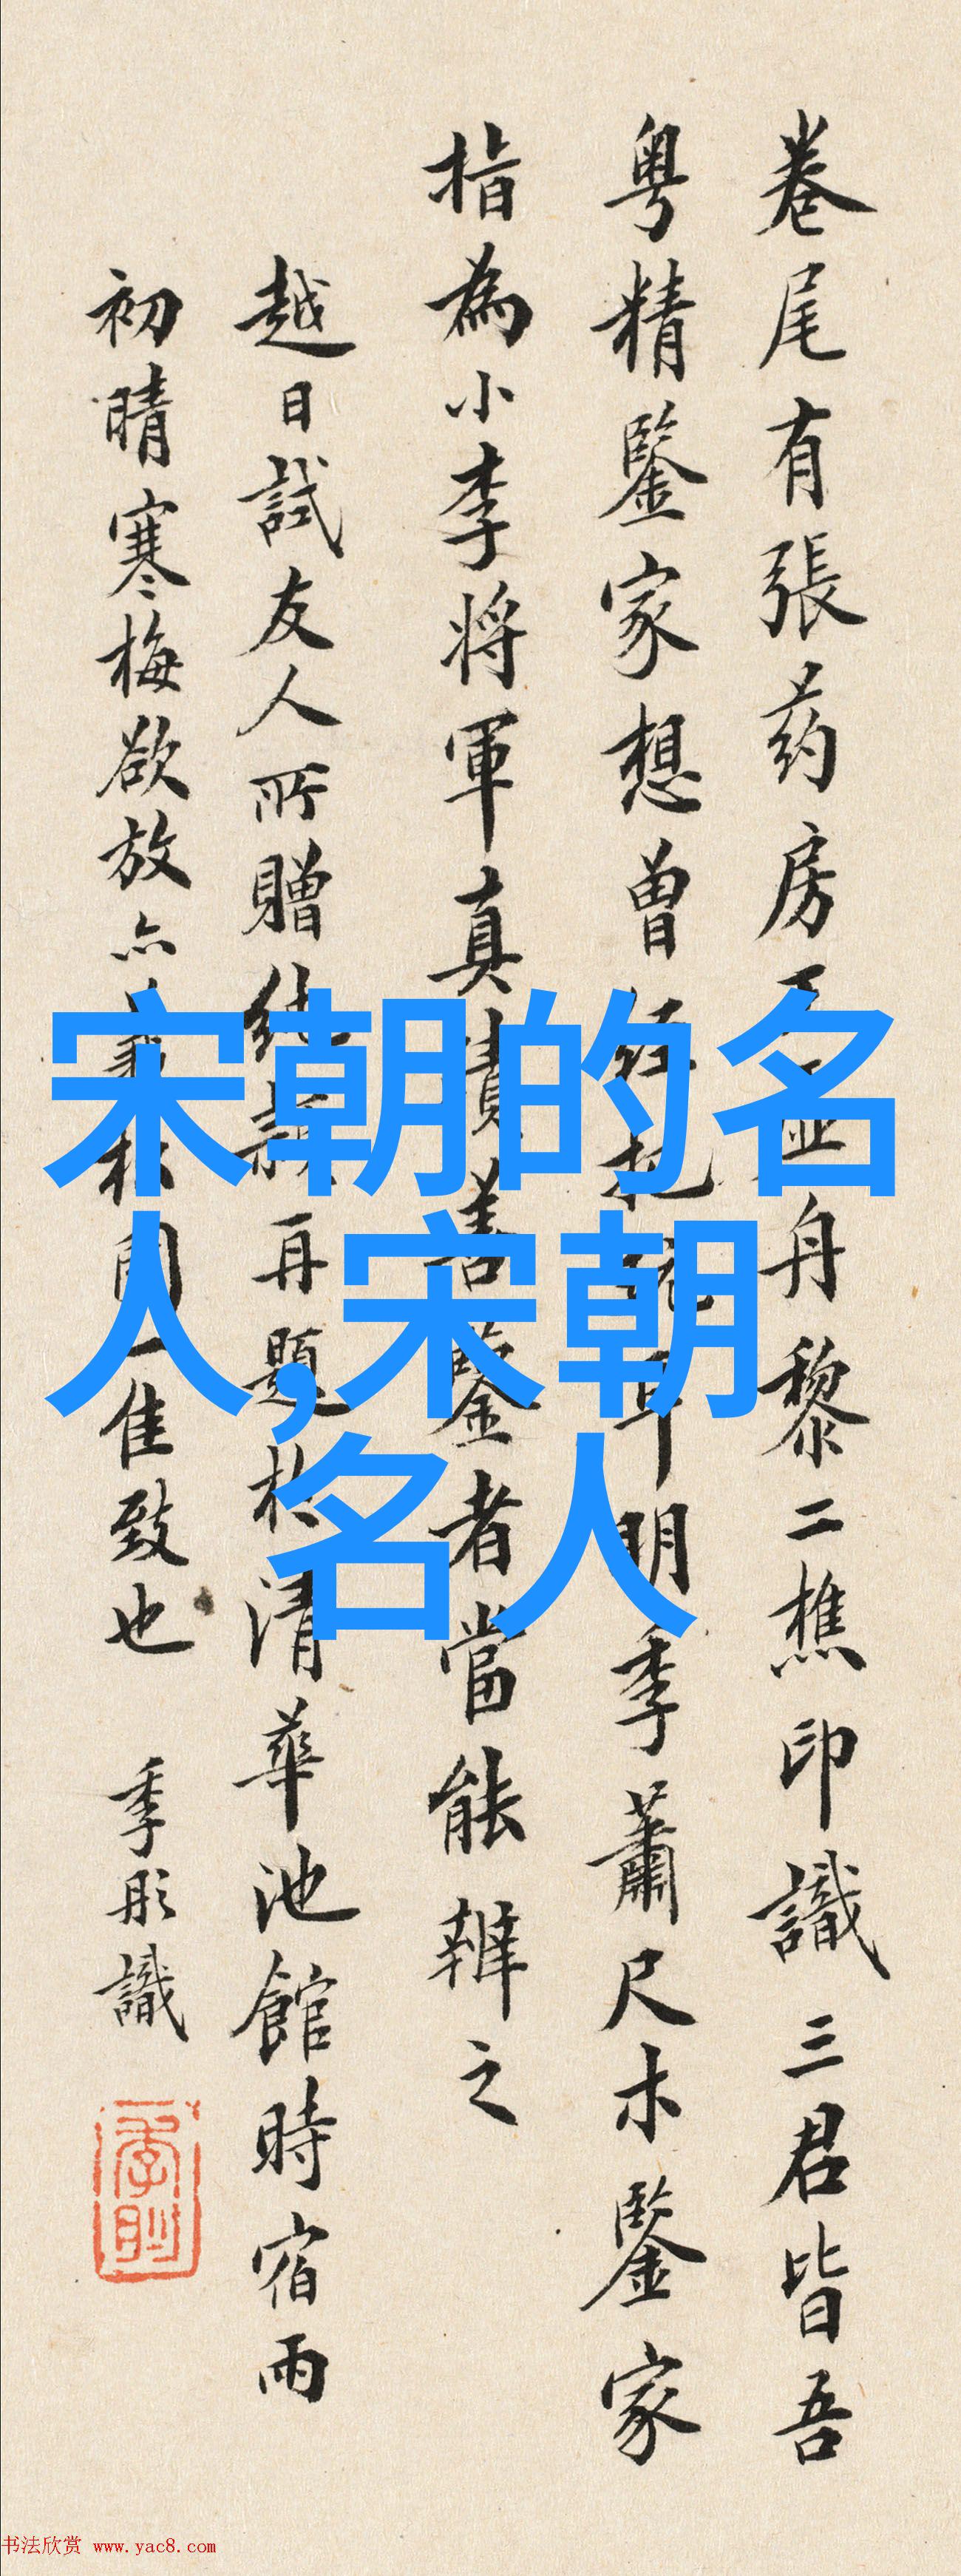 卷尾有張药房 舟黎二樵印識三君皆吾
粤精鑒家想曾 明季蕭尺木鑒家
指為小李將軍真蹟善鑒者當能辨之
越日試友人所贈 再題於清華池館時宿雨
初晴寒梅欲放亦 一佳致也 季彤識
宋朝的名
人,宋朝
名人
书法欣赏 www.yac8.com